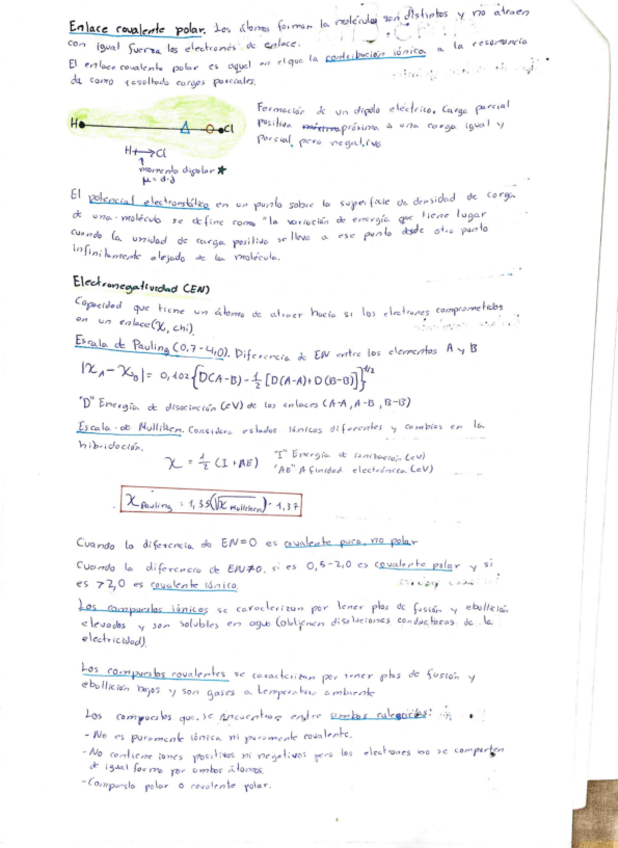 Enlace covalente polar. Los átomos forman la molécula son distintos y no atraen
con igual fuerza los electrones de enlace.
El enlace covalente polar es aquel en el que la contribución iónica a la resonancia
da como resultado cargas parciales.
Formación de un dipolo eléctrico. Carga parcial
positiva próxima a una carga igual y
parcial, pero negativa
H Cl
H+→Cl
momento dipolar ★
μ = d·d
El potencial electrostático en un punto sobre la superficie de densidad de carga
de una molécula se define como "la variación de energía que tiene lugar
cuando la unidad de carga positiva se lleva a ese punto desde otro punto
infinitamente alejado de la molécula.
Electronegatividad (EN)
Capacidad que tiene un átomo de atraer hacia si los electrones comprometidos
en un enlace (X, chi).
Escala de Pauling (0,7-4,0). Diferencia de EN entre los elementos A y B
|X_A - X_B| = 0,102 {D(A-B) - 1/2 [D(A-A)+D(B-B)]}^1/2
"D" Energía de disociación (eV) de los enlaces (A-A, A-B, B-B)
Escala de Mulliken. Considera estados iónicos diferentes y cambios en la
hibridación.
X = 1/2 (I+AE)
"I" Energía de ionización (eV)
"AE" Afinidad electrónica (eV)
X Pauling = 1,35(√X Mulliken) - 1,37
Cuando la diferencia de EN=0 es covalente puro, no polar
Cuando la diferencia de EN≠0, si es 0,5-2,0 es covalente polar y si
es >2,0 es covalente iónica.
Los compuestos iónicos se caracterizan por tener ptos de fusión y ebullición
elevados y son solubles en agua (obtienen disoluciones conductoras de la
electricidad).
Los compuestos covalentes se caracterizan por tener ptos de fusión y
ebullición bajos y son gases a temperatura ambiente
Los compuestos que se encuentran entre ambas categorías:
- No es puramente iónica ni puramente covalente.
- No contiene iones positivos ni negativos pero los electrones no se comparten
de igual forma por ambos átomos.
- Compuesto polar o covalente polar.